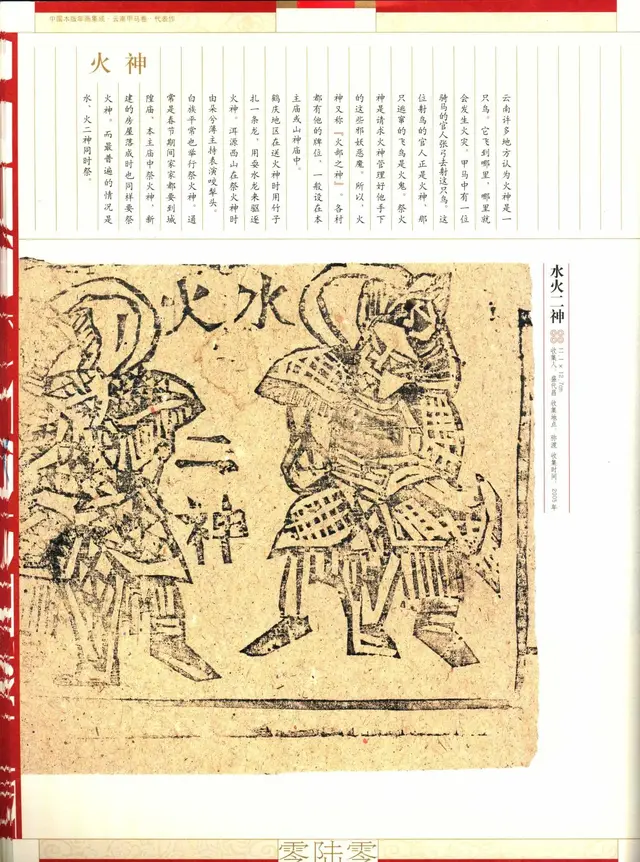 中国木版年画集成·云南甲马卷·代表作
火神
云南许多地方认为火神是一
只鸟。它飞到哪里，哪里就
会发生火灾，甲马中有一位
骑马的官人张弓去射这只鸟。这
位射鸟的官人正是火神，那
只逃窜的飞鸟是火鬼。祭火
神是请求火神管理好他手下
的这些邪妖恶魔。所以，火
神又称『火部之神』。各村
都有他的牌位，一般设在本
主庙或山神庙中。
鹤庆地区在送火神时用竹子
扎一条龙，用垒水龙来驱逐
火神。洱源西山在祭火神时
由朵兮薄主持表演咬犁头。
白族平常也举行祭火神。通
常是春节期间家家都要到城
隍庙、本主庙中祭火神，新
建的房屋落成时也同样要祭
火神。而最普遍的情况是
水、火二神同时祭。
水火二神
收集人：盛代昌 收集地点：弥渡 收集时间：2005年
水火
二神
零陆零